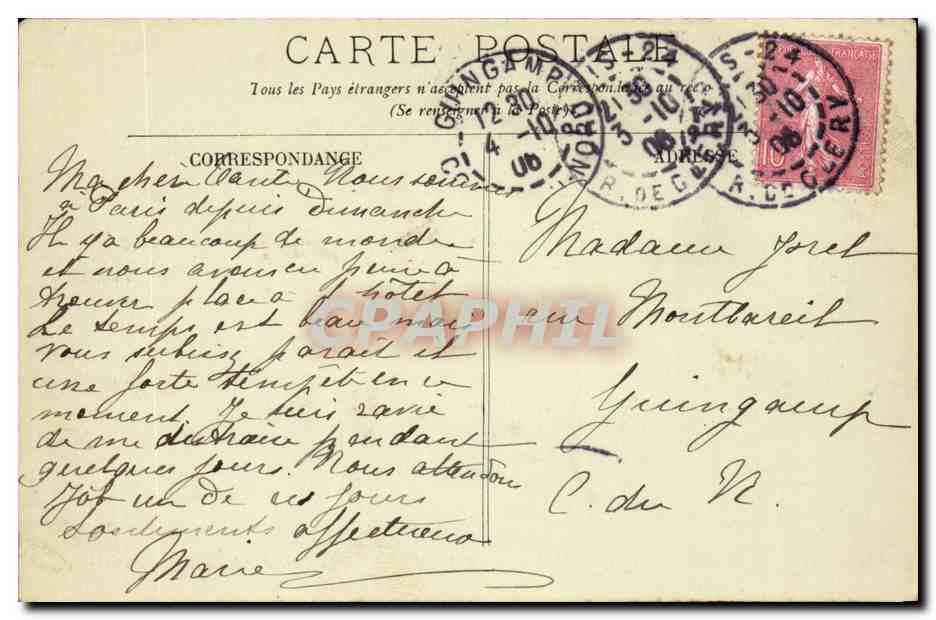 CARTE POSTALE
Tous les Pays étrangers n'acceptent pas la Correspondance au recto
(Se renseigner à la Poste)
GUINGAMP
12 30
4 -10
06
C. DU NORD
-2 4
30
-10
06
R. DE CLERY
-2 4
30
-10
06
R. DE CLERY
FRANÇAISE
10
CORRESPONDANCE
ADRESSE
Ma chère Nous sommes
à Paris depuis dimanche
Il y a beaucoup de monde
et nous avons eu peine à
trouver place à l'hôtel
Le temps est beau mais
vous subissez paraît et
une forte tempête en ce
moment. Je suis ravie
de me distraire pendant
quelques jours. Nous attendons
Job un de ces jours
Sentiments affectueux
Marie
Madame Jorel
en Montbareil
Guingamp
C. du N.
CPAPHIL